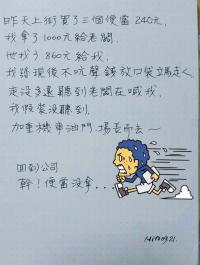 昨天上街買了三個便當240元.
我拿了1000元給老闆.
他找了860元給我.
我發現後不吭聲錢放口袋立馬走人
走沒多遠聽到老闆在喊我.
我假裝沒聽到.
加重機車油門.揚長而去~
回到公司
幹!便當沒拿...